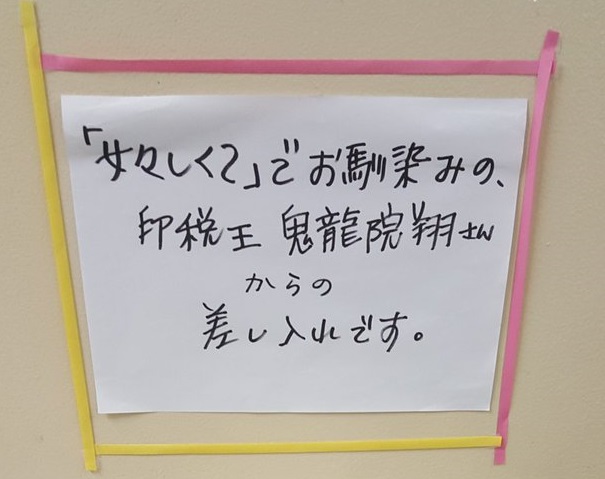 「女々しくて」でお馴染みの、
印税王 鬼龍院翔さん
からの
差し入れです。